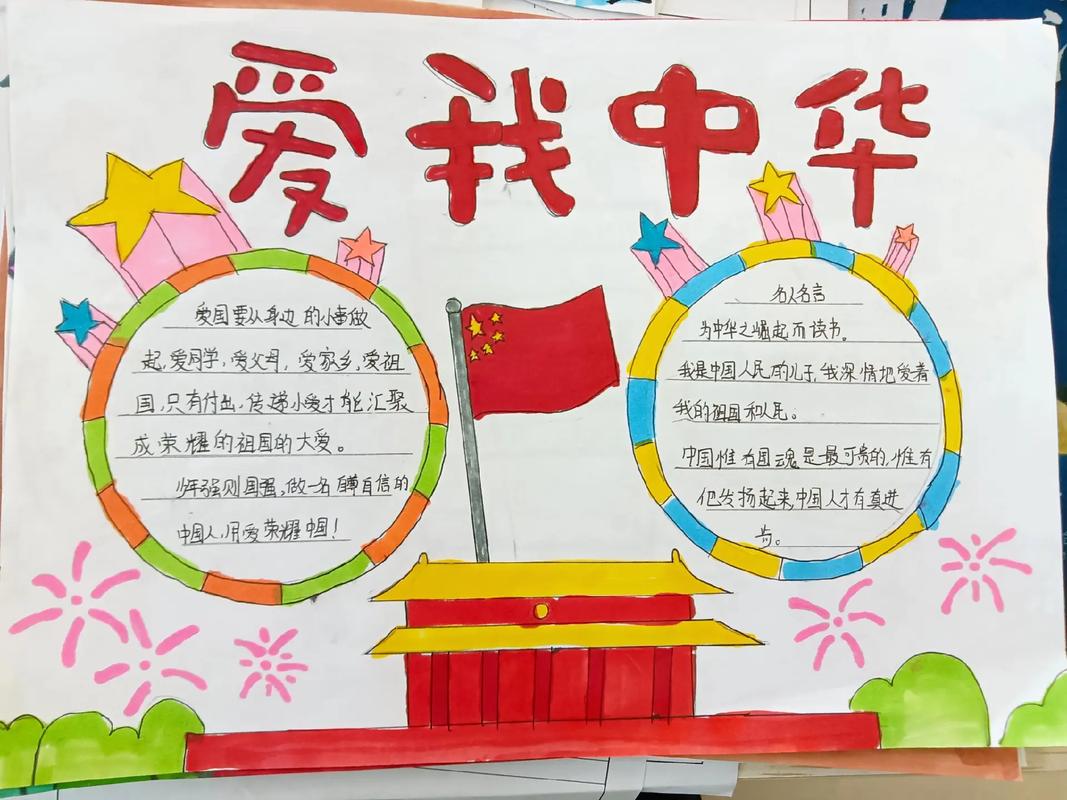 爱我中华
爱国要从身边的小事做
起,爱同学,爱父母,爱家乡,爱祖
国,只有付出,传递小爱才能汇聚
成荣耀的祖国的大爱。
少年强则国强,做一名自尊自信的
中国人,用爱荣耀中国!
名人名言
为中华之崛起而读书。
我是中国人民的儿子,我深情地爱着
我的祖国和人民。
中国惟有国魂是最可贵的,惟有
他发扬起来,中国人才有真进
步。